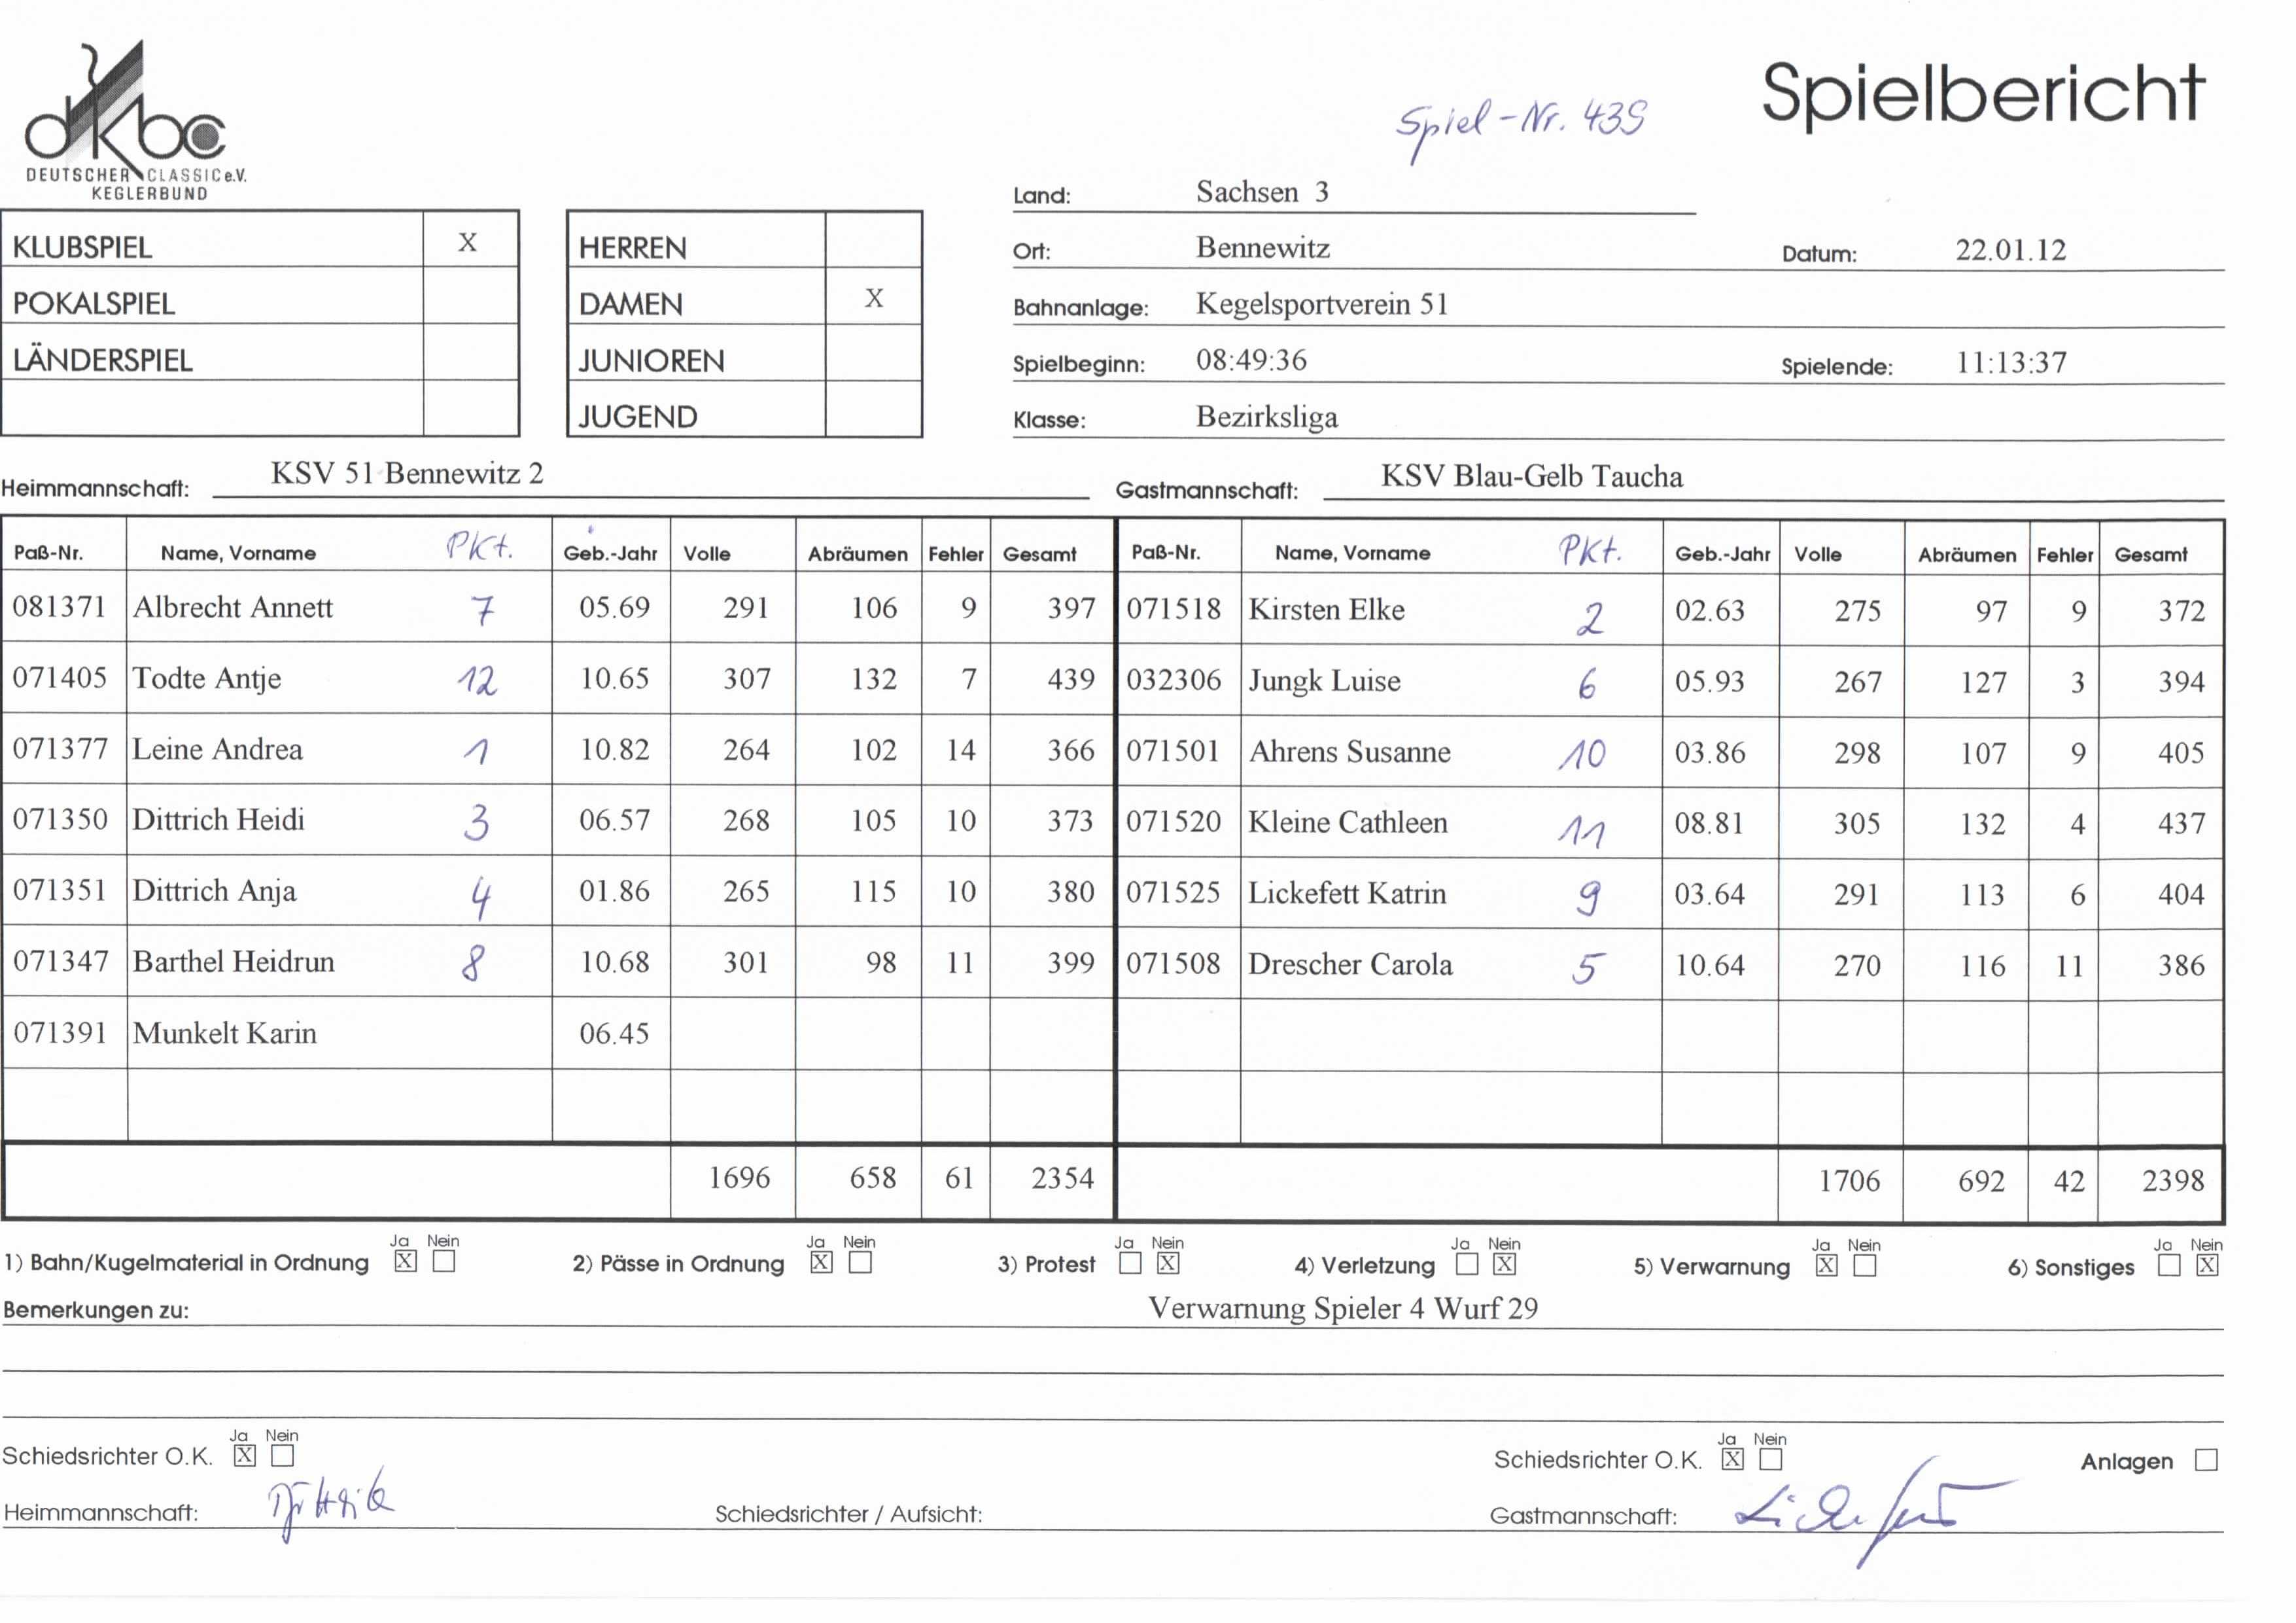 dkbc
DEUTSCHER CLASSIC e.V.
KEGLERBUND
Spielbericht
Spiel-Nr. 439
Land: Sachsen 3
KLUBSPIEL X
POKALSPIEL
LÄNDERSPIEL
HERREN
DAMEN X
JUNIOREN
JUGEND
Ort: Bennewitz Datum: 22.01.12
Bahnanlage: Kegelsportverein 51
Spielbeginn: 08:49:36 Spielende: 11:13:37
Klasse: Bezirksliga
Heimmannschaft: KSV 51 Bennewitz 2 Gastmannschaft: KSV Blau-Gelb Taucha
Paß-Nr. Name, Vorname Pkt. Geb.-Jahr Volle Abräumen Fehler Gesamt Paß-Nr. Name, Vorname Pkt. Geb.-Jahr Volle Abräumen Fehler Gesamt
081371 Albrecht Annett 7 05.69 291 106 9 397 071518 Kirsten Elke 2 02.63 275 97 9 372
071405 Todte Antje 12 10.65 307 132 7 439 032306 Jungk Luise 6 05.93 267 127 3 394
071377 Leine Andrea 1 10.82 264 102 14 366 071501 Ahrens Susanne 10 03.86 298 107 9 405
071350 Dittrich Heidi 3 06.57 268 105 10 373 071520 Kleine Cathleen 11 08.81 305 132 4 437
071351 Dittrich Anja 4 01.86 265 115 10 380 071525 Lickefett Katrin 9 03.64 291 113 6 404
071347 Barthel Heidrun 8 10.68 301 98 11 399 071508 Drescher Carola 5 10.64 270 116 11 386
071391 Munkelt Karin 06.45
1696 658 61 2354 1706 692 42 2398
1) Bahn/Kugelmaterial in Ordnung Ja X Nein 2) Pässe in Ordnung Ja X Nein 3) Protest Ja Nein X 4) Verletzung Ja Nein X 5) Verwarnung Ja X Nein 6) Sonstiges Ja Nein X
Bemerkungen zu: Verwarnung Spieler 4 Wurf 29
Schiedsrichter O.K. Ja X Nein Schiedsrichter O.K. Ja X Nein Anlagen
Heimmannschaft: Schiedsrichter / Aufsicht: Gastmannschaft: